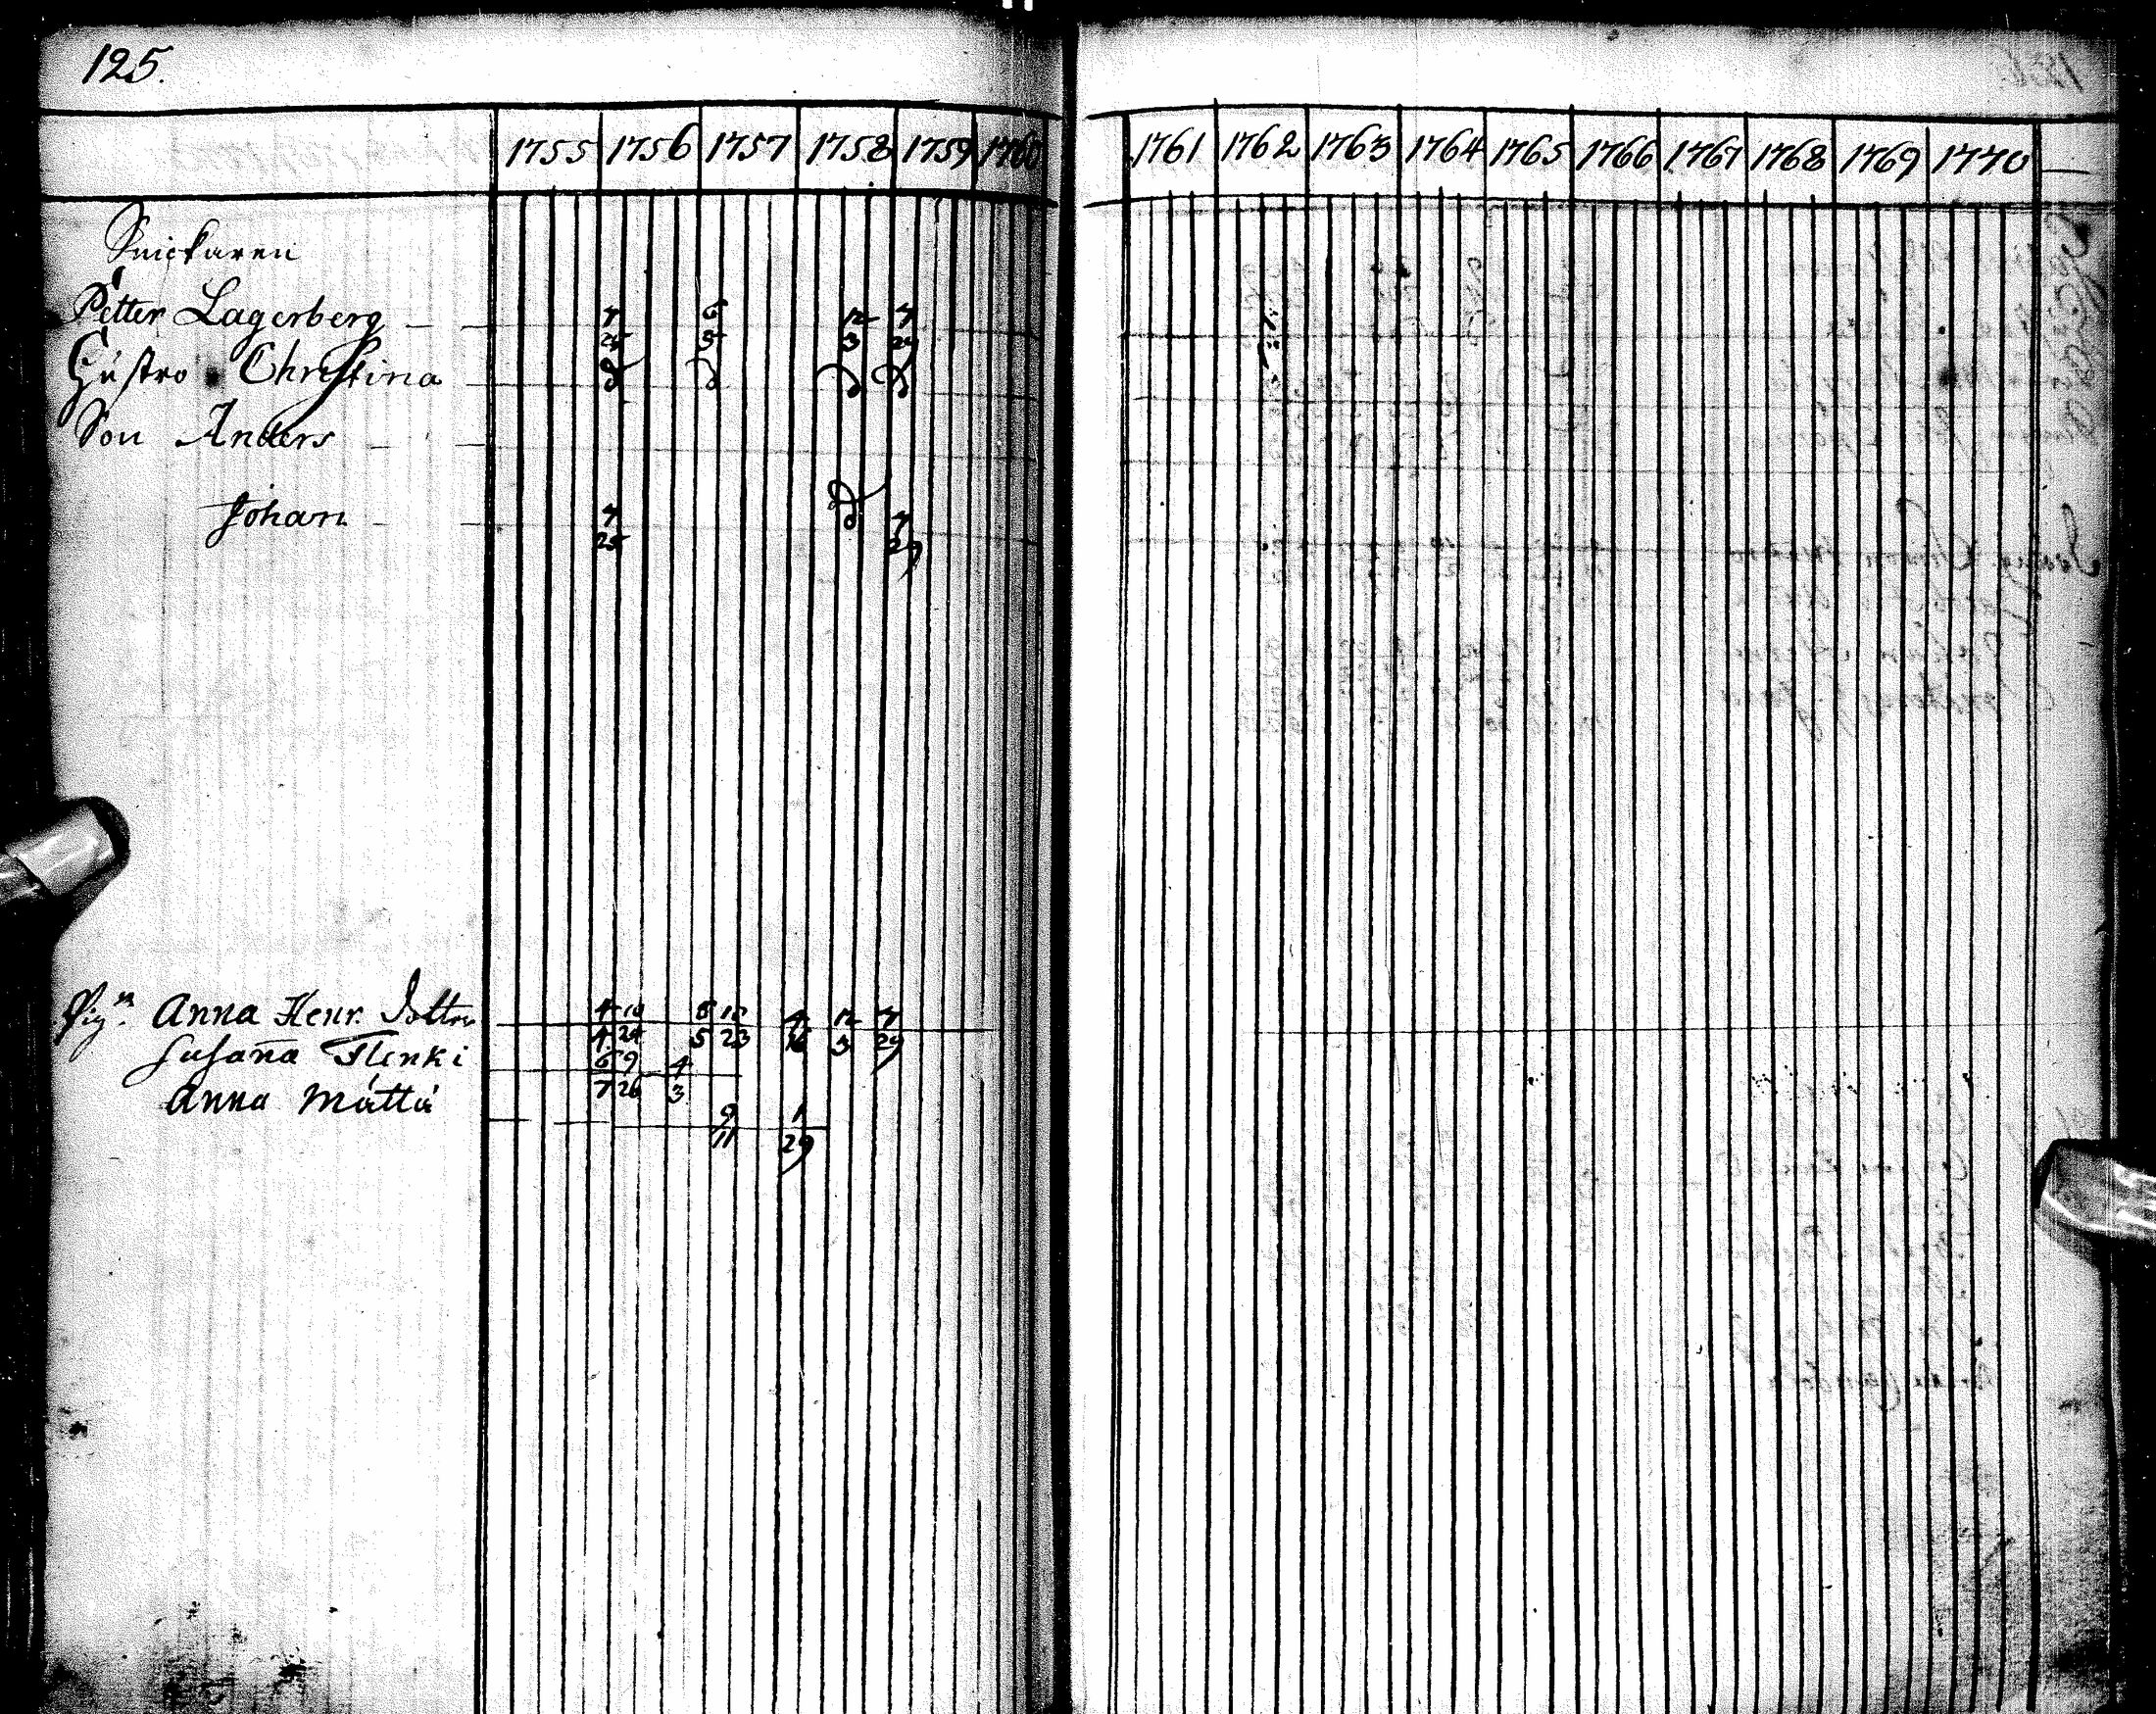 125.
1755 1756 1757 1758 1759 1760 1761 1762 1763 1764 1765 1766 1767 1768 1769 1770
Snickaren
Petter Lagerberg 7 6 12 7
25 5 3 29
Hustro Christina
Son Anders
Johan 7 7
25 29
Pig.n Anna Henr. Dotter 4 10 8 12 4 12 7
4 24 5 23 16 3 29
Susana Flenki 6 9 4
7 26 3
Anna Mattä 9 1
11 29